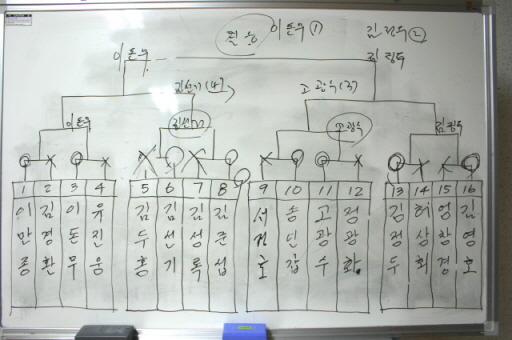 이돈우 ① 김정두 ②
이돈우 김정두
김선기 (4) 고광수 (3)
이돈우 김선기 고광수 김정두
1 2 3 4 5 6 7 8 9 10 11 12 13 14 15 16
이 김 이 유 김 김 김 김 서 송 고 정 김 허 엄 김
만 경 돈 진 두 선 성 준 민 광 광 정 상 창 영
종 환 무 웅 홍 기 록 섭 호 갑 수 화 두 회 경 호